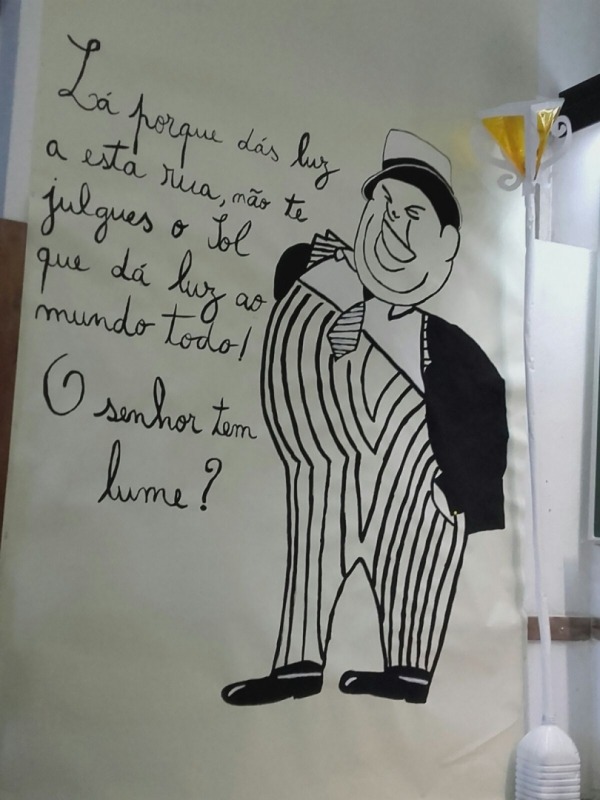 Lá porque dás luz
a esta rua, não te
julgues o Sol
que dá luz ao
mundo todo!
O senhor tem
lume?